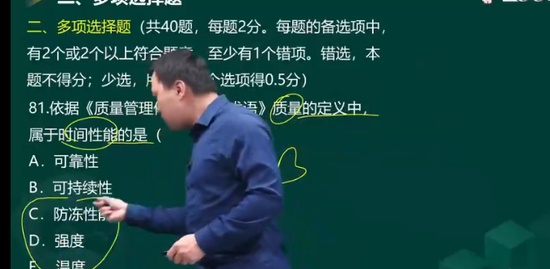 二、多项选择题
二、多项选择题（共40题，每题2分。每题的备选项中，
有2个或2个以上符合题 至少有1个错项。错选，本
题不得分；少选， 个选项得0.5分）
81.依据《质量管理 术语》质量的定义中，
属于时间性能的是（
A．可靠性
B．可持续性
C．防冻性
D．强度
E．温度